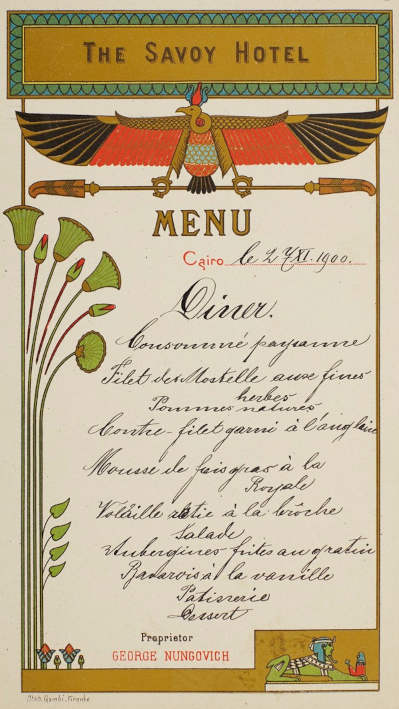 THE SAVOY HOTEL
MENU
Cairo le 27/XI. 1900.
Diner.
Consommé paysanne
Filet de Mostelle aux fines
herbes
Pommes natures
Contre-filet garni à l'anglaise
Mousse de foie gras à la
Royale
Volaille rotie à la broche
Salade
Aubergines frites au gratin
Bavarois à la vanille
Patisserie
Dessert
Proprietor
GEORGE NUNGOVICH